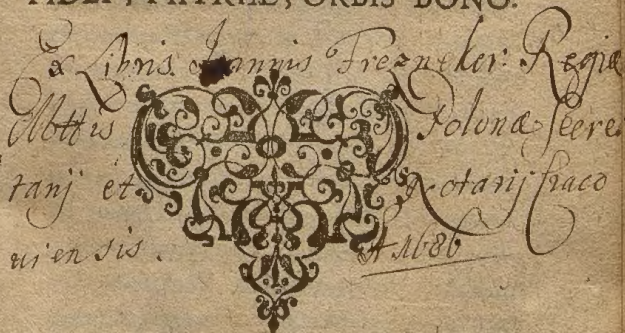 FIDEI, PATRIÆ, ORBIS BONO.
Ex Libris Joannis Frezneker: Regiæ
Mttis Polonæ Secre
tarij et Notarij Craco
uiensis. A 1686